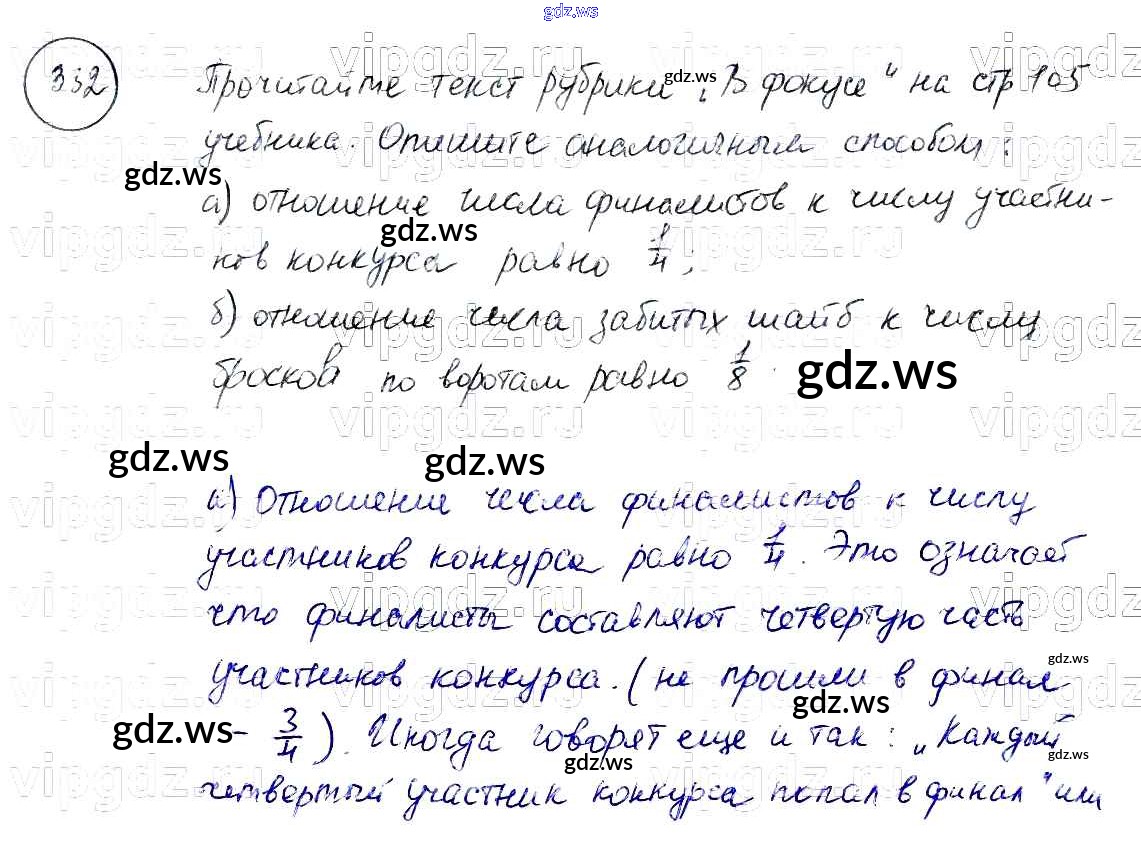 gdz.ws
332
Прочитайте текст рубрики „В фокусе" на стр 105
учебника. Опишите аналогичным способом:
а) отношение числа финалистов к числу участни-
ков конкурса равно 1/4;
б) отношение числа забитых шайб к числу
бросков по воротам равно 1/8.
а) Отношение числа финалистов к числу
участников конкурса равно 1/4. Это означает
что финалисты составляют четвертую часть
участников конкурса. (не прошли в финал
- 3/4). Иногда говорят еще и так: „Каждый
четвертый участник конкурса попал в финал" или
gdz.ws
gdz.ws
gdz.ws
gdz.ws
gdz.ws
gdz.ws
gdz.ws
gdz.ws
gdz.ws
gdz.ws
gdz.ws
vipgdz.ru